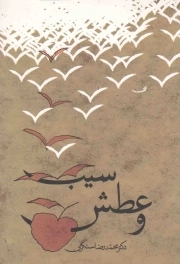 سیب
و عطش
دکتر محمدرضا سنگری